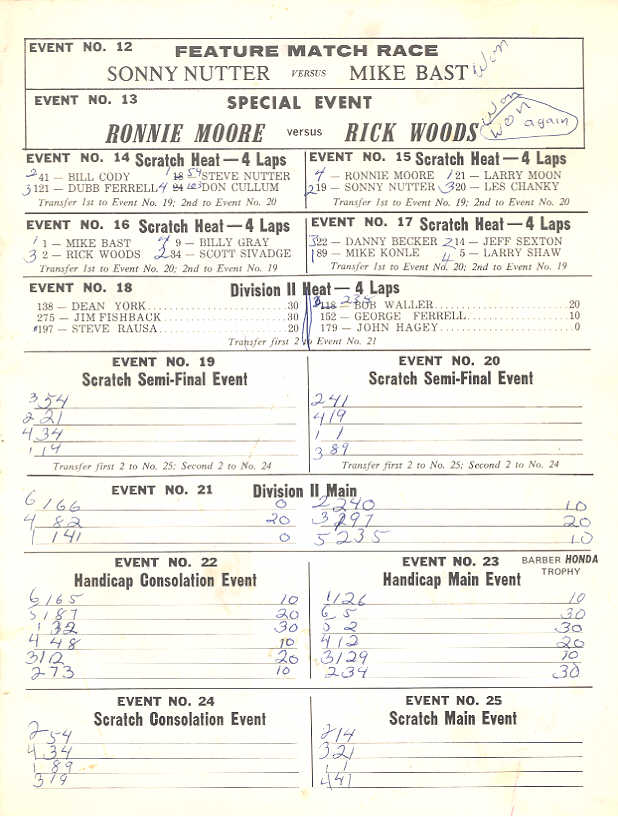 EVENT NO. 12 FEATURE MATCH RACE
SONNY NUTTER VERSUS MIKE BAST Won
EVENT NO. 13 SPECIAL EVENT
RONNIE MOORE versus RICK WOODS Won Won again
EVENT NO. 14 Scratch Heat — 4 Laps
2 41 — BILL CODY 1 18 54 STEVE NUTTER
3 121 — DUBB FERRELL 4 24 163 DON CULLUM
Transfer 1st to Event No. 19; 2nd to Event No. 20
EVENT NO. 15 Scratch Heat — 4 Laps
4 — RONNIE MOORE 1 21 — LARRY MOON
2 19 — SONNY NUTTER 3 20 — LES CHANKY
Transfer 1st to Event No. 19; 2nd to Event No. 20
EVENT NO. 16 Scratch Heat — 4 Laps
1 1 — MIKE BAST 4 9 — BILLY GRAY
3 2 — RICK WOODS 2 34 — SCOTT SIVADGE
Transfer 1st to Event No. 20; 2nd to Event No. 19
EVENT NO. 17 Scratch Heat — 4 Laps
3 22 — DANNY BECKER 2 14 — JEFF SEXTON
1 89 — MIKE KONLE 4 5 — LARRY SHAW
Transfer 1st to Event No. 20; 2nd to Event No. 19
EVENT NO. 18 Division II Heat — 4 Laps
138 — DEAN YORK 30
275 — JIM FISHBACK 30
#197 — STEVE RAUSA 20
118 235 — BOB WALLER 20
152 — GEORGE FERRELL 10
179 — JOHN HAGEY 0
Transfer first 2 to Event No. 21
EVENT NO. 19
Scratch Semi-Final Event
3 54
2 21
4 34
1 14
Transfer first 2 to No. 25; Second 2 to No. 24
EVENT NO. 20
Scratch Semi-Final Event
2 41
4 19
1 1
3 89
Transfer first 2 to No. 25; Second 2 to No. 24
EVENT NO. 21 Division II Main
6 166 0
4 82 20
1 141 0
2 240 10
3 297 20
5 235 10
EVENT NO. 22
Handicap Consolation Event
6 165 10
5 187 20
1 32 30
4 48 10
3 112 20
2 73 10
EVENT NO. 23 BARBER HONDA TROPHY
Handicap Main Event
1 126 10
6 5 30
5 2 30
4 12 20
3 129 10
2 34 30
EVENT NO. 24
Scratch Consolation Event
2 54
4 34
1 89
3 19
EVENT NO. 25
Scratch Main Event
2 14
3 21
1 1
4 41